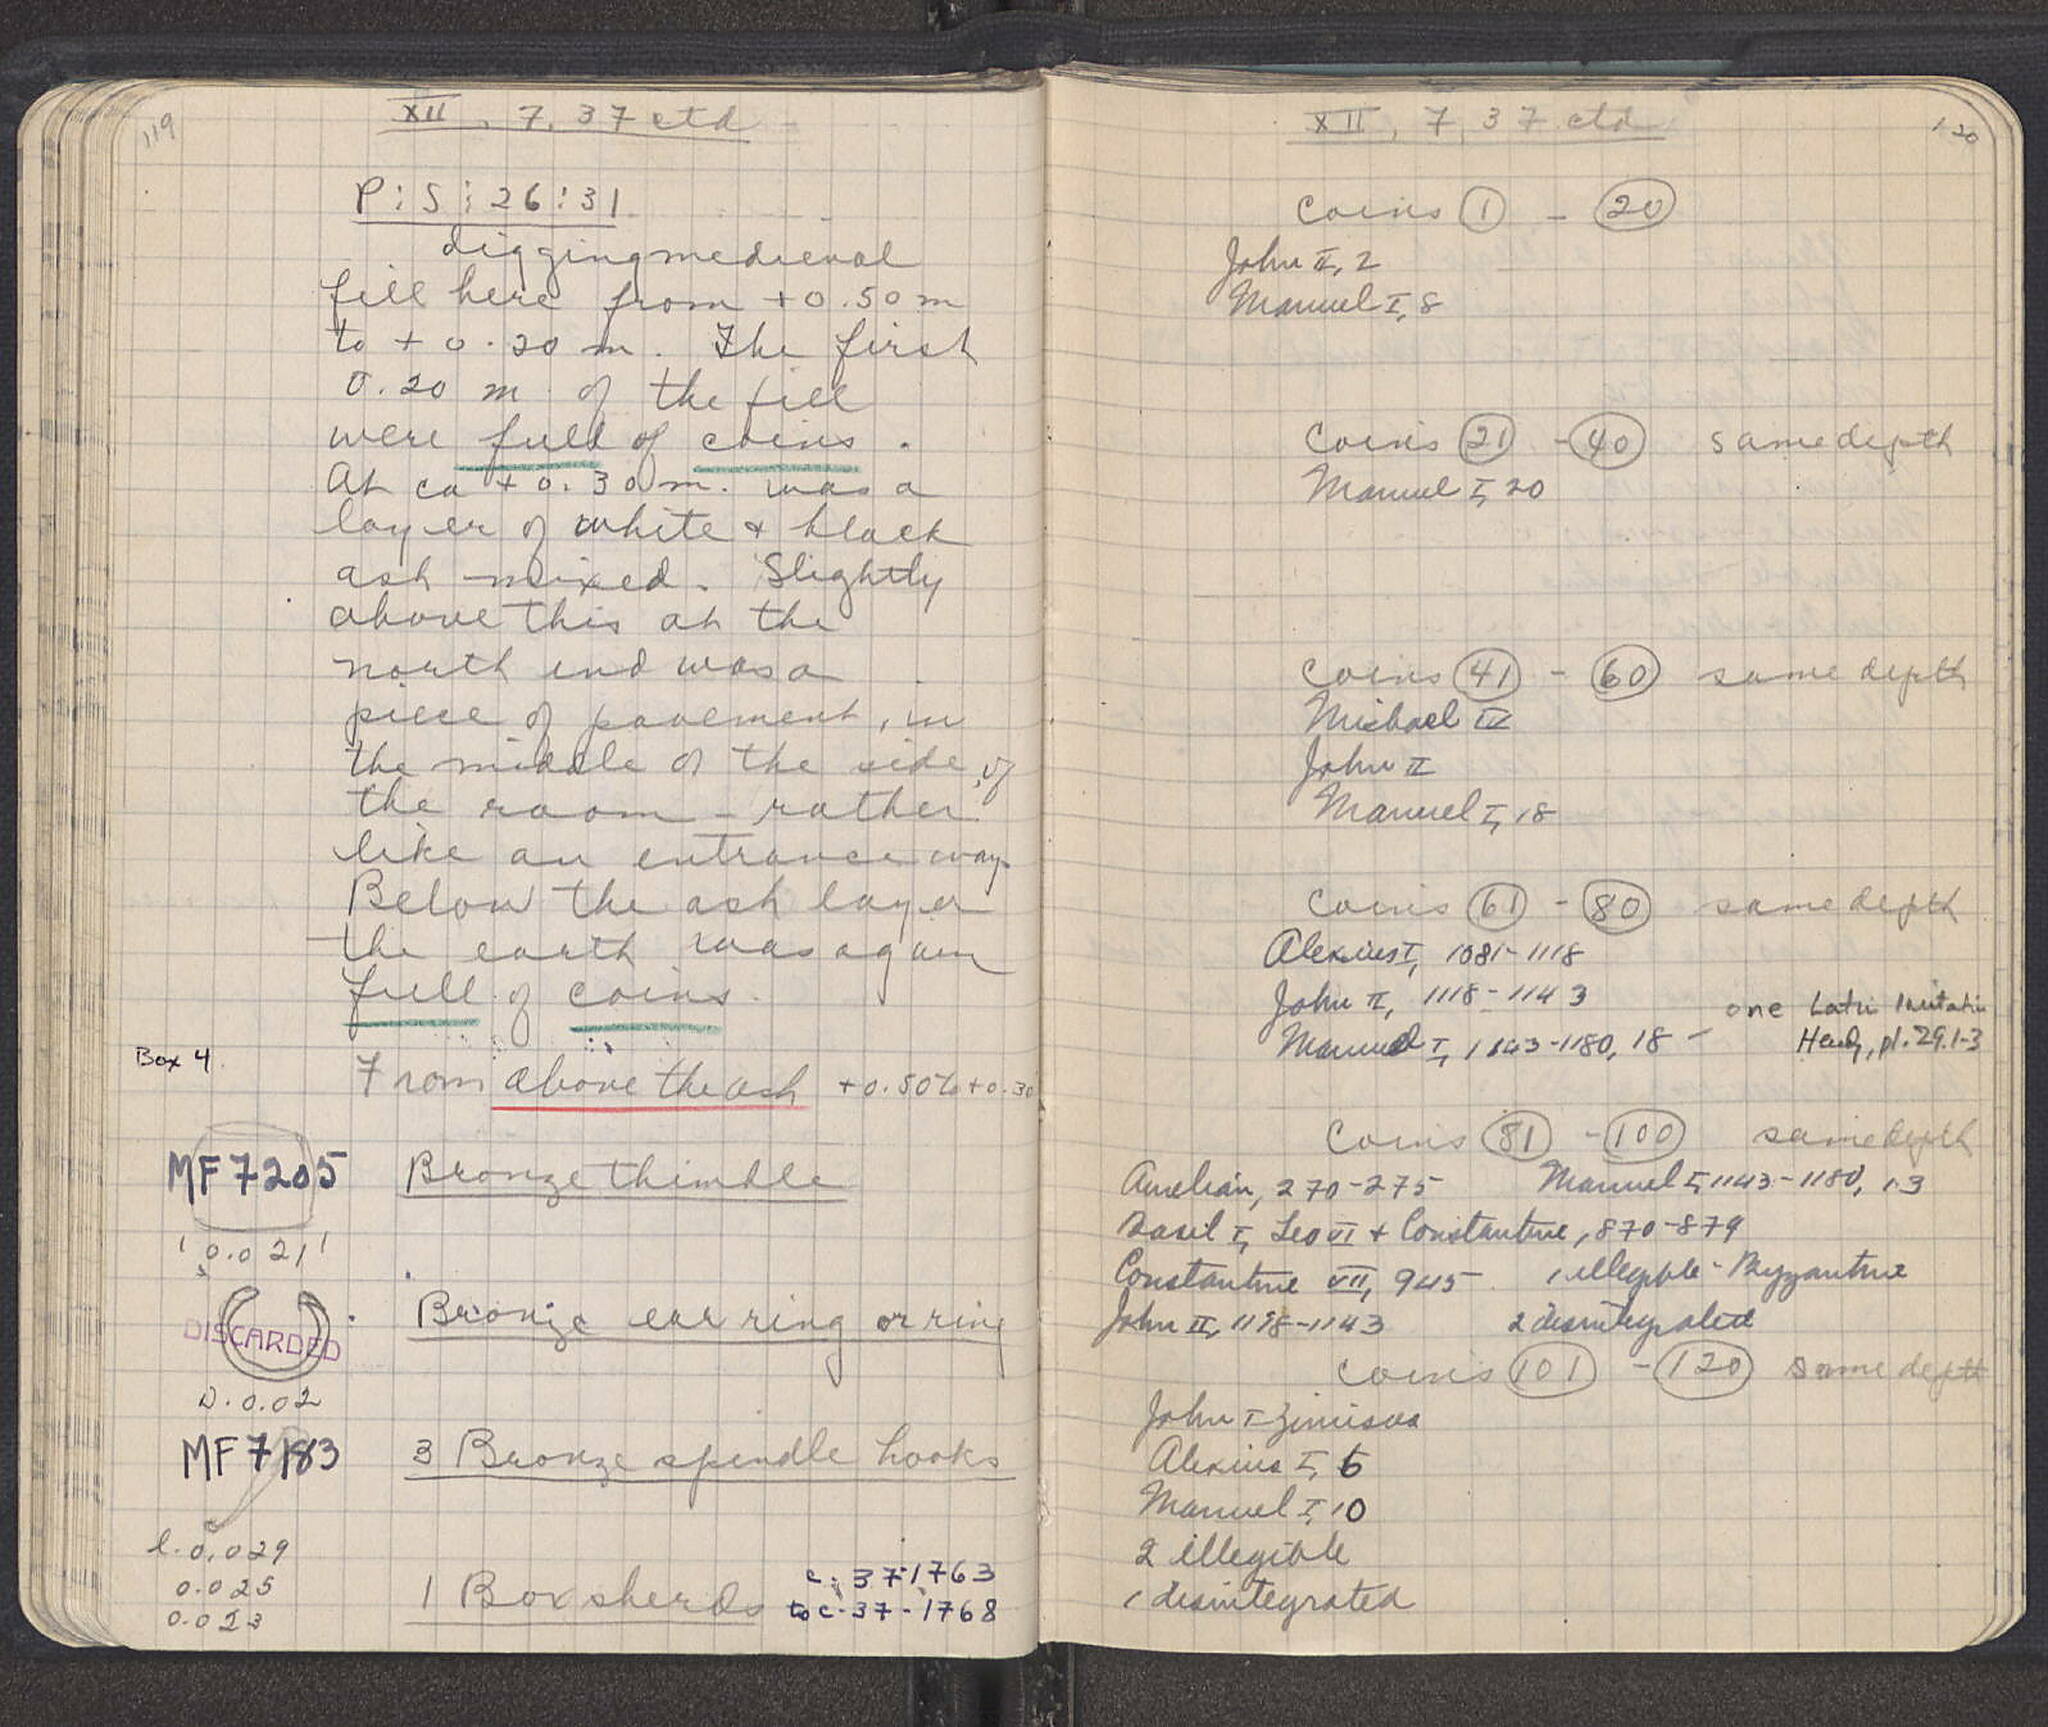 119
XII, 7, 37 ctd
P:S:26:31
digging medieval
fill here from +0.50 m
to +0.20 m. The first
0.20 m of the fill
were full of coins.
At ca +0.30 m. was a
layer of white & black
ash mixed. Slightly
above this at the
north end was a
piece of pavement, in
the middle of the side of
the room - rather
like an entrance way.
Below the ash layer
the earth was again
full of coins.
Box 4
From above the ash +0.50 to +0.30
MF 7205 Bronze thimble
0.021
Bronze ear ring or ring
DISCARDED
D. 0.02
MF 7183 3 Bronze spindle hooks
l. 0.029
0.025
0.023
1 Box sherds c-37-1763
to c-37-1768
120
XII, 7, 37 ctd
Coins 1 - 20
John II, 2
Manuel I, 8
Coins 21 - 40 same depth
Manuel I, 20
Coins 41 - 60 same depth
Michael IV
John II
Manuel I, 18
Coins 61 - 80 same depth
Alexius I, 1081-1118
John II, 1118-1143
Manuel I, 1143-1180, 18 - one Latin Imitation
Hendy, pl. 29.1-3
Coins 81 - 100 same depth
Aurelian, 270-275 Manuel I, 1143-1180, 13
Basil I, Leo VI + Constantine, 870-879
Constantine VII, 945 1 illegible - Byzantine
John II, 1118-1143 2 disintegrated
Coins 101 - 120 same depth
John I Zimisces
Alexius I, 6
Manuel I, 10
2 illegible
1 disintegrated